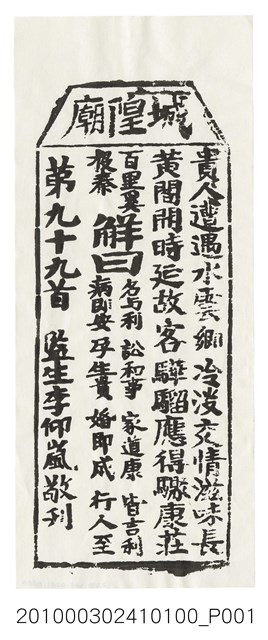 城隍廟
貴人遭遇水雲鄉冷淡交情滋味長
黃閣開時延故客驊騮應得驟康莊
百里奚投秦
解曰
名与利訟和事家道康皆吉利
病即安孕生貴婚即成行人至
第九十九首 監生李仰嵐敬刊
201000302410100_P001